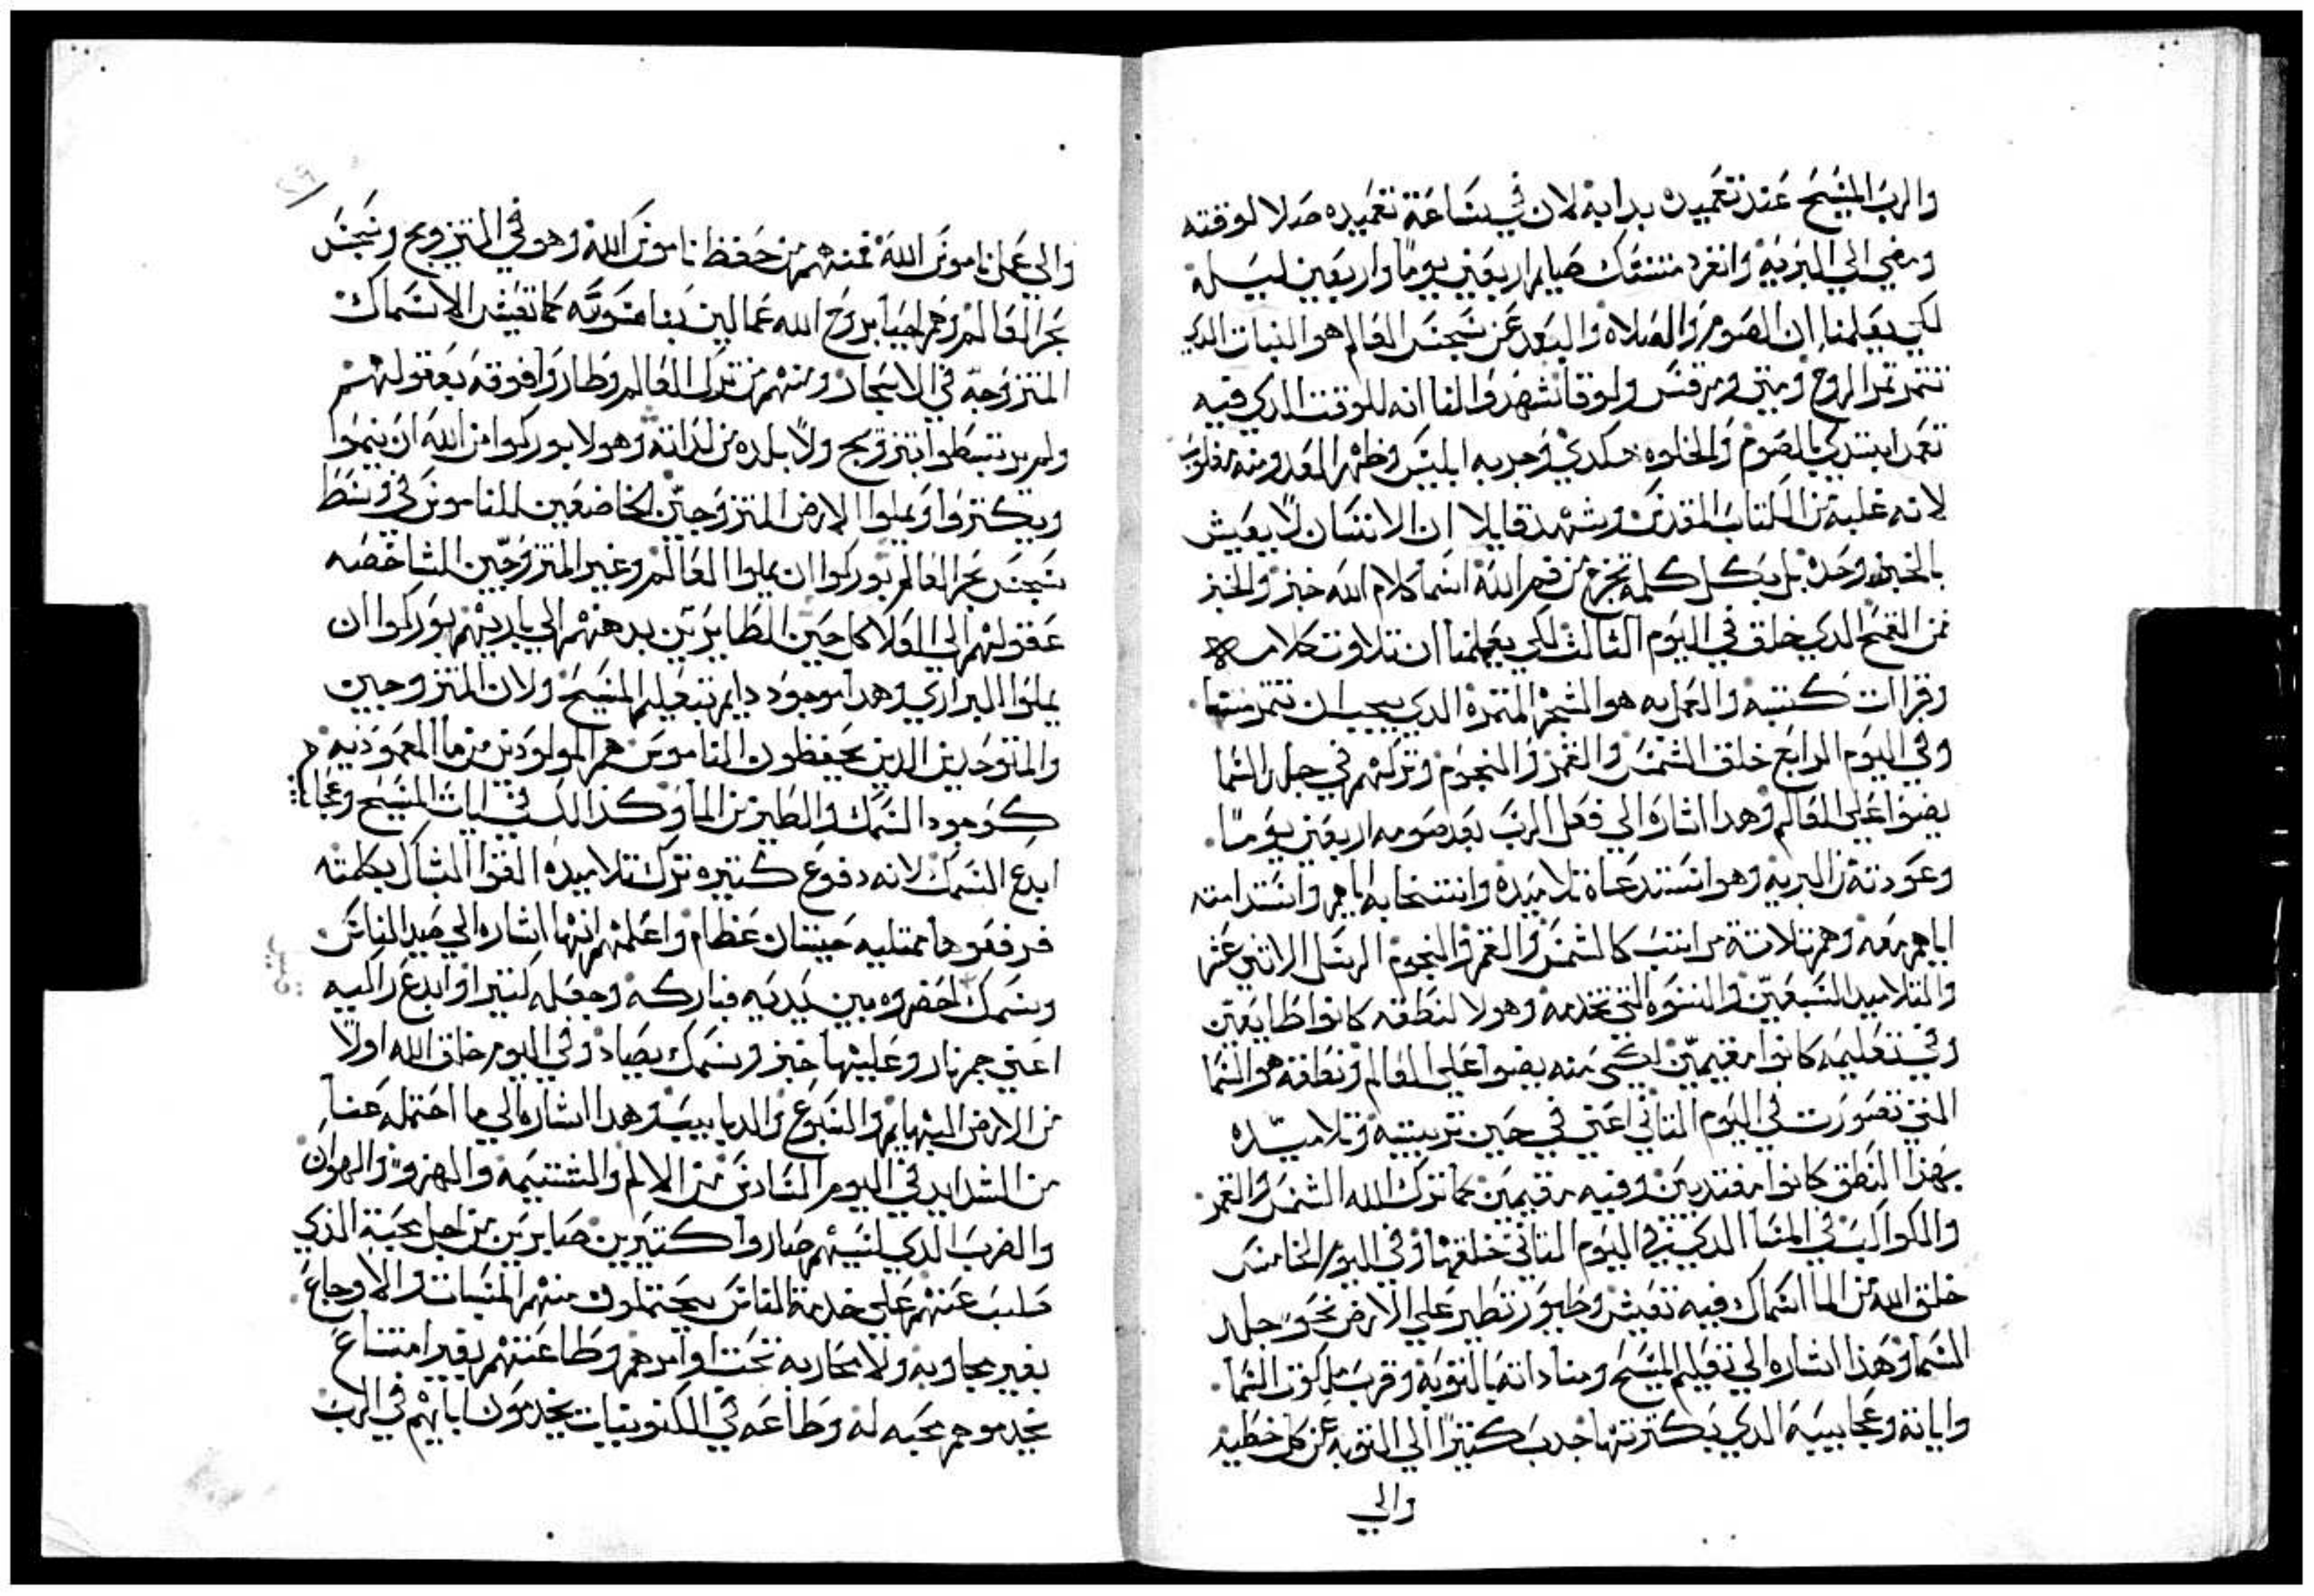 والرب المسيح عند تعميده بدا به لان في ساعة تعميده صلا لوقته
ومضي الي البريه وانفرد متنسك صايم اربعين يوماً واربعين ليلة
لكي يعلمنا ان الصوم والصلاه والبعد عن سجس العالم هو النبات الدي
تتمر تمر الروح ومتي ومرقس ولوقا شهدوا لنا انه للوقت الدي فيه
تعمد ابتدي بالصوم والخلوه حكدي وجربه ابليس وظهر العدو منه مغلوب
لانه غلبه من الكتاب المقدس وشهد قايلا ان الانسان لا يعيش
بالخبز وحده بل بكل كلمه تخرج من فم الله اسما كلام الله خبز والخبز
من القمح الدي خلق في اليوم الثالث لكي يعلمنا ان تلاوت كلامه
وقراات كتبه والعمل به هو الشجر المتمره الدي يجب ان نتمر منها
وفي اليوم الرابع خلق الشمس والقمر والنجوم وتركهم في جلد السما
يضيوا علي العالم وهدا اشاره الي فعل الرب بعد صومه اربعين يوماً
وعودته من البريه وهو استدعاة تلاميده وانتخابه اياهم واستدامته
اياهم معه وهم تلاتة مراتب كالشمس والقمر والنجوم الرسل الاثني عشر
والتلاميد السبعين والنسوه التي تخدمه وهولا لنطقه كانوا طايعين
وفي تعليمه كانوا مقيمين لكي منه يضيوا علي العالم ونطقه هو السما
التي تصورت في اليوم التاني اعني في حين تربيته وتلاميده
بهذا النطق كانوا مقتديين وفيه مقيمين كما ترك الله الشمس والقمر
والكواكب في السما الدي في اليوم التاني خلقها وفي اليوم الخامس
خلق الله من الما اسماك فيه تعيش وطيور تطير علي الارض نحو جلد
السما وهذا اشاره الي تعليم المسيح ومناداته بالتوبة وقرب ملكوت السما
واياته وعجايبه الدي بكترتها جدب كتيراً الي التوبه عن كل خطيه
والي
والي عمل ناموس الله فمنهم من حفظ ناموس الله وهو في التزويج وسجس
بحر العالم وهم احيا بروح الله عمالين بناموسه كما تعيش الاسماك
المتزوجه في الابحار ومنهم من ترك العالم وطاروا فوقه بعقولهم
ولم يرتبطوا بتزويج ولا بلده من لداته وهولا بوركوا من الله ان ينموا
ويكتروا ويملوا الارض المتزوجين الخاضعين للناموس في وسط
سجس بحر العالم بوركوا ان يملوا العالم وغير المتزوجين الشاخصه
عقولهم الي العلا كل حين الطايرين بدهنهم الي باريهم بوركوا ان
يملوا البراري وهدا موجود دايم بتعليم المسيح ولان المتزوجين
والمتوحدين الدين يحفظون الناموس هم المولودين من ما المعموديه
كوجود السمك والطير من الما وكذالك في ايات المسيح وعجايبه
ابدع السمك لانه دفوع كتيره ترك تلاميده القوا الشباك بكلمته
فرفعوها ممتليه حيتان عظام واعلمهم انها اشاره الي صيد الناس
وسمك احضروه بين يديه فباركه وجعله كتيرا وابدع راكيه
اعني جمر نار وعليها خبز وسمك يصاد وفي اليوم خلق الله اولا
من الارض البهايم والسبوع والدبابيب وهدا اشاره الي ما احتمله عنا
من الشدايد في اليوم السادس من الالم والشتيمه والهزو والهوان
والضرب الدي لسببهم صاروا كتيرين صابرين من اجل محبة الذي
صلب عنهم علي خدمة الناس يحتملون منهم السيات والاوجاع
بغير مجاوبه ولا محاربه تحت اوامرهم وطاعتهم بغير امتناع
يخدموهم محبه له وطاعه في الكنوبيات يخدمون ابايهم في الرب